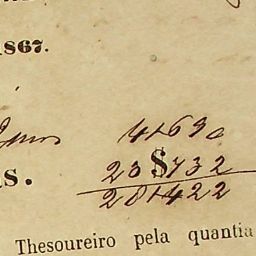 1867.
4$690
s. 23$732
28$422
Thesoureiro pela quantia